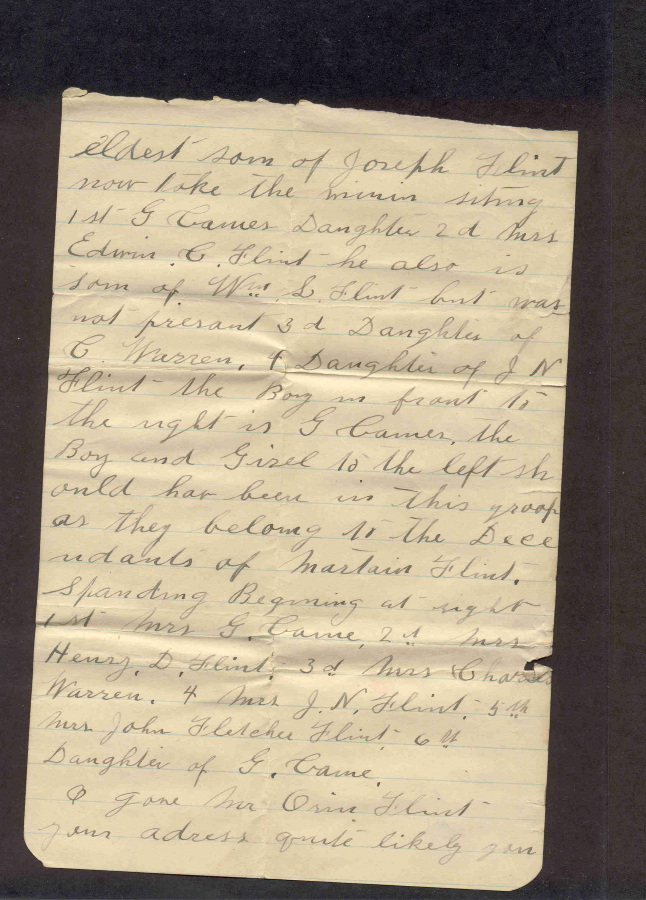 eldest som of Joseph Flint
now take the wimin siting
1st G Cames Daughter 2d Mrs
Edwin. C. Flint he also is
som of Wm. S. Flint but was
not presant 3d Daughter of
C. Warren, 4 Daughter of J N
Flint the Boy in front to
the right is G Cames, the
Boy and Girel to the left sh
ould hav been in this groop
as they belong to the Dece
ndants of Martain Flint.
Spanding Begining at right
1st Mrs G. Came, 2d Mrs
Henry. D. Flint, 3d Mrs
Warren. 4 Mrs J. N. Flint, 5th
Mrs John Fletcher Flint, 6th
Daughter of G. Came.
I gave Mr Orin Flint
your adress quite likely you